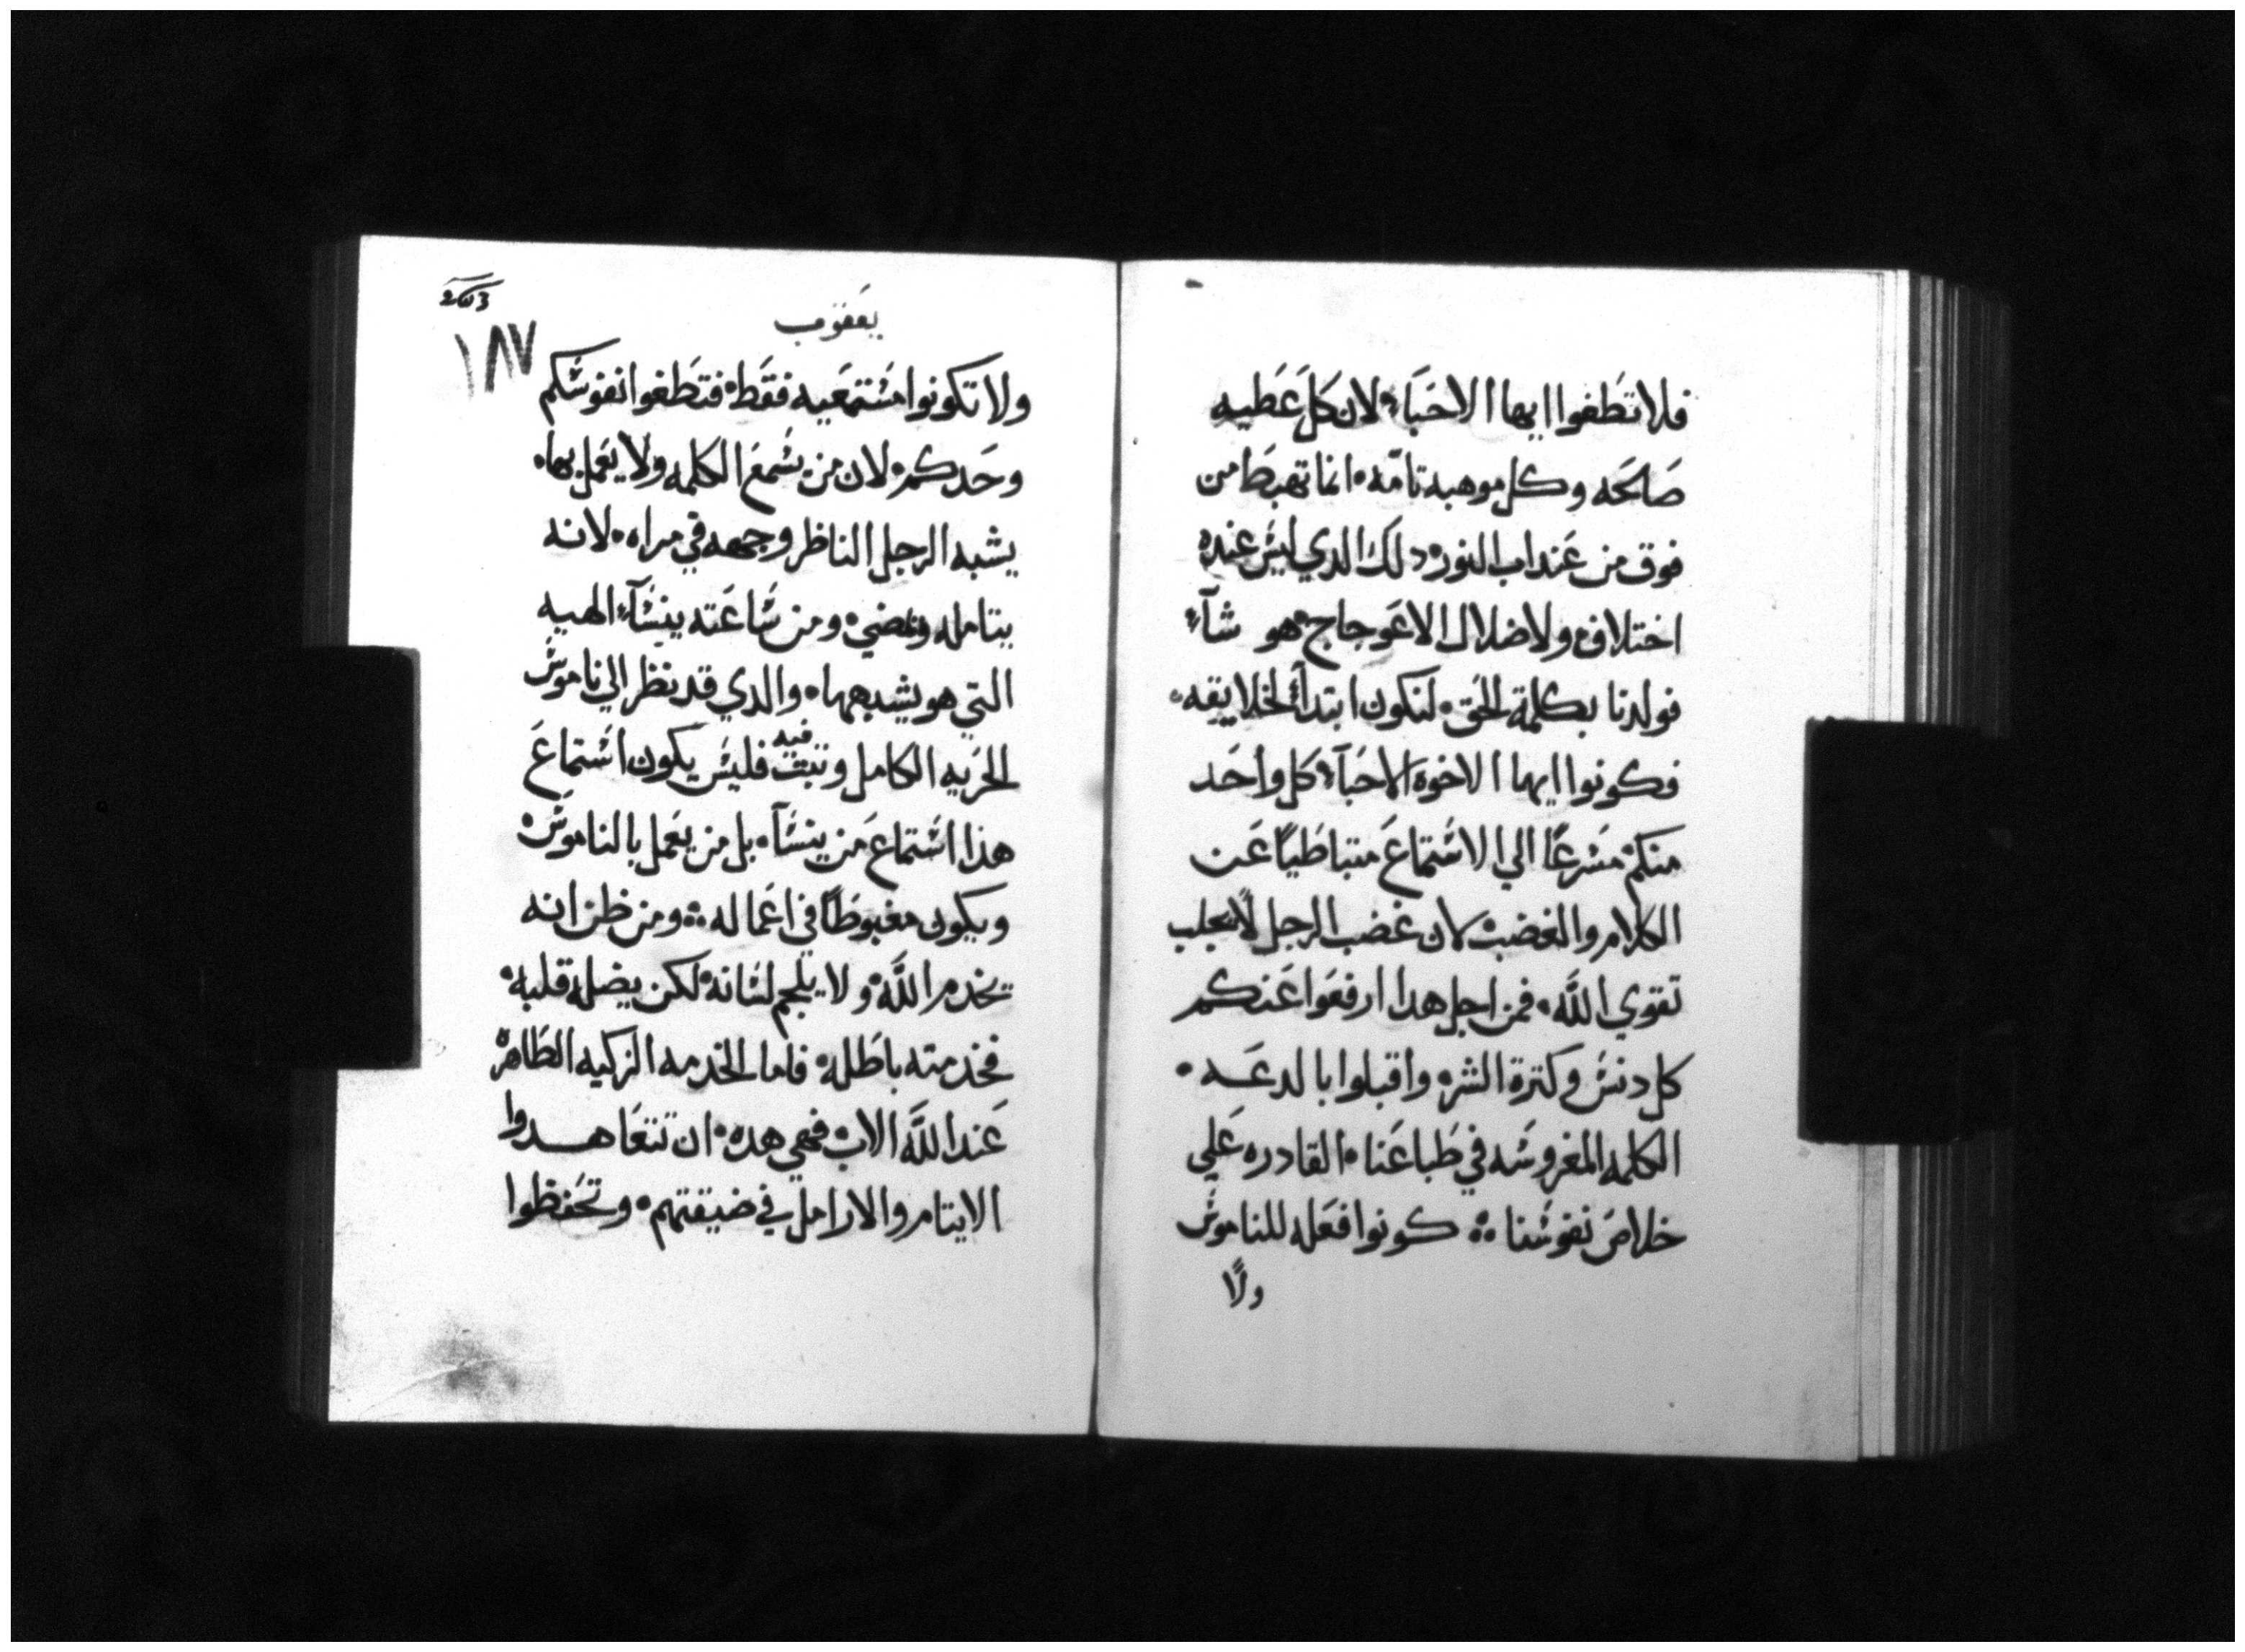 فلا تطغوا ايها الاحباء لان كل عطيه
صالحه وكل موهبه تامه انما تهبط من
فوق من عند اب النور دلك الدي ليس عنده
اختلاف ولا ضلال الاعوجاج هو شآء
فولدنا بكلمة الحق لنكون ابتدآء لخلايقه
فكونوا ايها الاخوه الاحبآء كل واحد
منكم مسرعًا الي الاستماع متباطيًا عن
الكلام والغضب لان غضب الرجل لا يجلب
تقوي اللّه فمن اجل هدا ارفعوا عنكم
كل دنس وكترة الشر واقبلوا بالدعه
الكلمه المغروسه في طباعنا القادره علي
خلاص نفوسنا كونوا فعله للناموس
ولا
يعقوب
١٨٧
ولا تكونوا مستمعيه فقط فتطغوا نفوسكم
وحدكم لان من يسمع الكلمه ولا يعمل بها
يشبه الرجل الناظر وجهه في مراه لانه
يتامله ويمضي ومن ساعته ينسآء الهيه
التي هو يشبهها والدي قد نظر الي ناموس
الحريه الكامل وتبت فيه فليس يكون استماع
هذا استماع من ينسآ بل من يعمل بالناموس
ويكون مغبوطًا في اعماله ومن ظن انه
يخدم اللّه ولا يلجم لسانه لكن يضله قلبه
فخدمته باطله فاما الخدمه الزكيه الطاهره
عند اللّه الاب فهي هده ان تتعاهدوا
الايتام والارامل في ضيقتهم وتحفظوا